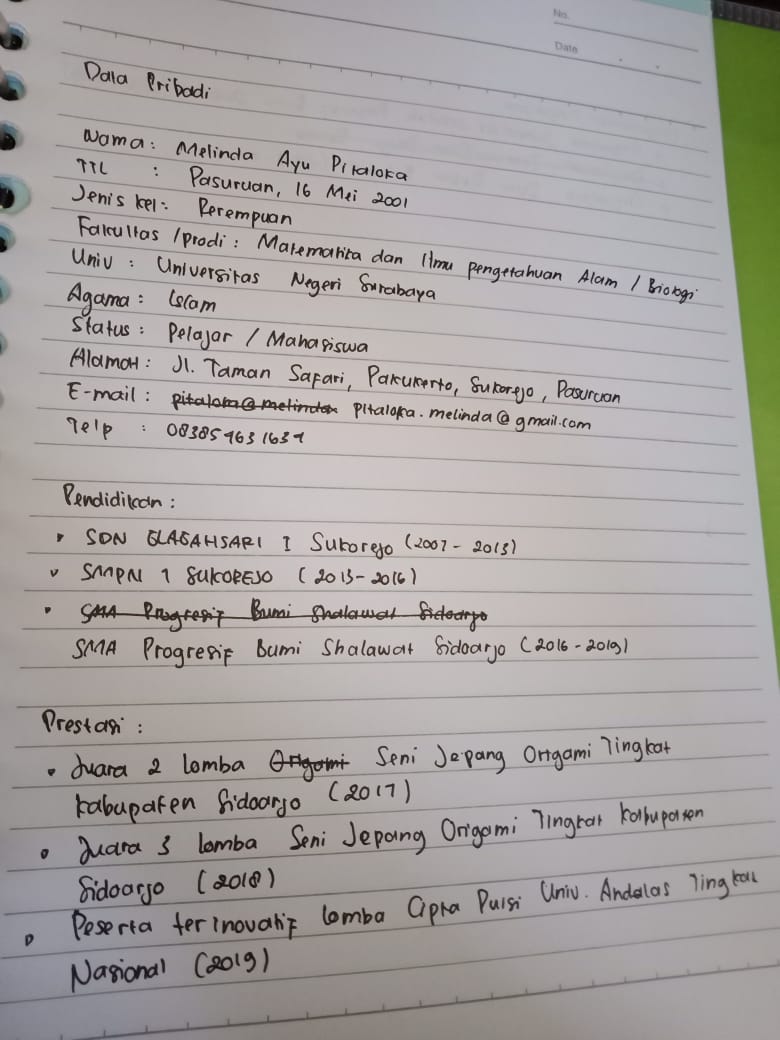 No.
Date
Data Pribadi
Nama: Melinda Ayu Pitaloka
TTL : Pasuruan, 16 Mei 2001
Jenis kel: Perempuan
Fakultas /prodi: Matematika dan Ilmu pengetahuan Alam / Biologi
Univ : Universitas Negeri Surabaya
Agama: Islam
Status: Pelajar / Mahasiswa
Alamat: Jl. Taman Safari, Pakukerto, Sukorejo, Pasuruan
E-mail: pitaloka.melinda@gmail.com
Telp :
Pendidikan:
• SDN GLAGAHSARI I Sukorejo (2007 - 2013)
• SMPN 1 SUKOREJO (2013-2016)
• SMA Progresif Bumi Shalawat Sidoarjo
SMA Progresif Bumi Shalawat Sidoarjo (2016 - 2019)
Prestasi:
• Juara 2 lomba Origami Seni Jepang Origami Tingkat
Kabupaten Sidoarjo (2017)
• Juara 3 lomba Seni Jepang Origami Tingkat Kabupaten
Sidoarjo (2018)
• Peserta terinovatif lomba Cipta Puisi Univ. Andalas Tingkat
Nasional (2019)